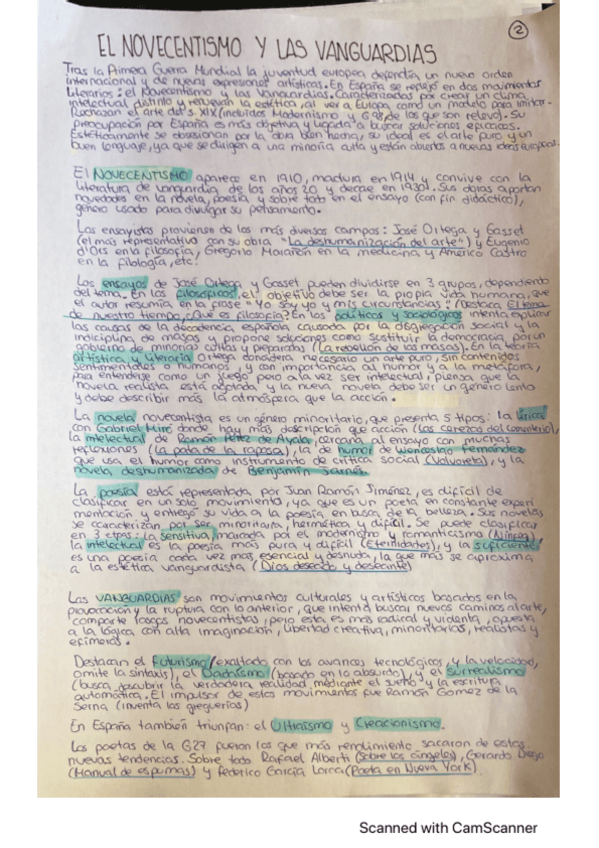 2
EL NOVECENTISMO Y LAS VANGUARDIAS
Tras la Primera Guerra Mundial la juventud europea defendía un nuevo orden
internacional y de nuevas expresiones artísticas. En España se reflejó en dos movimientos
literarios: el Novecentismo y las Vanguardias. Caracterizadas por crear un clima
intelectual distinto y renuevan la estética, al ver a Europa como un modelo para imitar.
Rechazan el arte del s. XIX (incluidos Modernismo y G98, de los que son relevo). Su
preocupación por España es más objetiva y ligada a buscar soluciones eficaces.
Estéticamente se obsesionan por la obra bien hecha, su ideal es el arte puro y un
buen lenguaje, ya que se dirigen a una minoría culta y están abiertos a nuevas ideas europeas.
El NOVECENTISMO aparece en 1910, madura en 1914 y convive con la
literatura de vanguardia de los años 20 y decae en 1930. Sus obras aportan
novedades en la novela, poesía y sobre todo en el ensayo (con fin didáctico),
género usado para divulgar su pensamiento.
Los ensayistas provienen de los más diversos campos: José Ortega y Gasset
(el más representativo con su obra "La deshumanización del arte") y Eugenio
d'Ors en la filosofía, Gregorio Marañón en la medicina y Américo Castro
en la filología, etc.
Los ensayos de José Ortega y Gasset pueden dividirse en 3 grupos, dependiendo
del tema. En los filosóficos, el objetivo debe ser la propia vida humana, que
el autor resumía en la frase "Yo soy yo y mis circunstancias". Destaca El tema
de nuestro tiempo, ¿Qué es filosofía? En los políticos y sociológicos intenta explicar
las causas de la decadencia española causada por la disgregación social y la
indisciplina de masas, y propone soluciones como sustituir la democracia por un
gobierno de minorías cultas y preparadas (La rebelión de las masas). En la teoría
artística y literaria Ortega considera necesario un arte puro, sin contenidos
sentimentales o humanos, y con importancia al humor y a la metáfora,
para entenderse como un juego pero a la vez ser intelectual; piensa que la
novela realista está agotada y la nueva novela debe ser un género lento
y debe describir más la atmósfera que la acción.
La novela novecentista es un género minoritario, que presenta 5 tipos: la lírica
con Gabriel Miró donde hay más descripción que acción (Las cerezas del cementerio),
la intelectual de Ramón Pérez de Ayala, cercana al ensayo con muchas
reflexiones (La pata de la raposa), la de humor de Wenceslao Fernández
que usa el humor como instrumento de crítica social (Volvoreta), y la
novela deshumanizada de Benjamín Jarnés.
La poesía está representada por Juan Ramón Jiménez, es difícil de
clasificar en un solo movimiento, ya que es un poeta en constante experi
mentación y entregó su vida a la poesía en busca de la belleza. Sus novelas
se caracterizan por ser minoritaria, hermética y difícil. Se puede clasificar
en 3 etapas: la sensitiva, marcada por el modernismo y romanticismo (Ninfea),
la intelectual es la poesía más pura y difícil (Eternidades), y la suficiente
es una poesía cada vez más esencial y desnuda, la que más se aproxima
a la estética vanguardista (Dios deseado y deseante)
Las VANGUARDIAS son movimientos culturales y artísticos basados en la
provocación y la ruptura con lo anterior, que intentó buscar nuevos caminos al arte,
comparte rasgos novecentistas, pero esta es más radical y violenta, opuesta
a la lógica, con alta imaginación, libertad creativa, minoritarias, realistas y
efímeras.
Destacan el Futurismo (exaltado con los avances tecnológicos y la velocidad,
omite la sintaxis), el Dadaísmo (basado en lo absurdo), y el surrealismo
(busca descubrir la verdadera realidad mediante el sueño y la escritura
automática). El impulsor de estos movimientos fue Ramón Gómez de la
Serna (inventa las greguerías)
En España también triunfan: el Ultraísmo y Creacionismo.
Los poetas de la G27 fueron los que más rendimiento sacaron de estas
nuevas tendencias. Sobre todo Rafael Alberti (Sobre los ángeles), Gerardo Diego
(Manual de espumas) y Federico García Lorca (Poeta en Nueva York).
Scanned with CamScanner